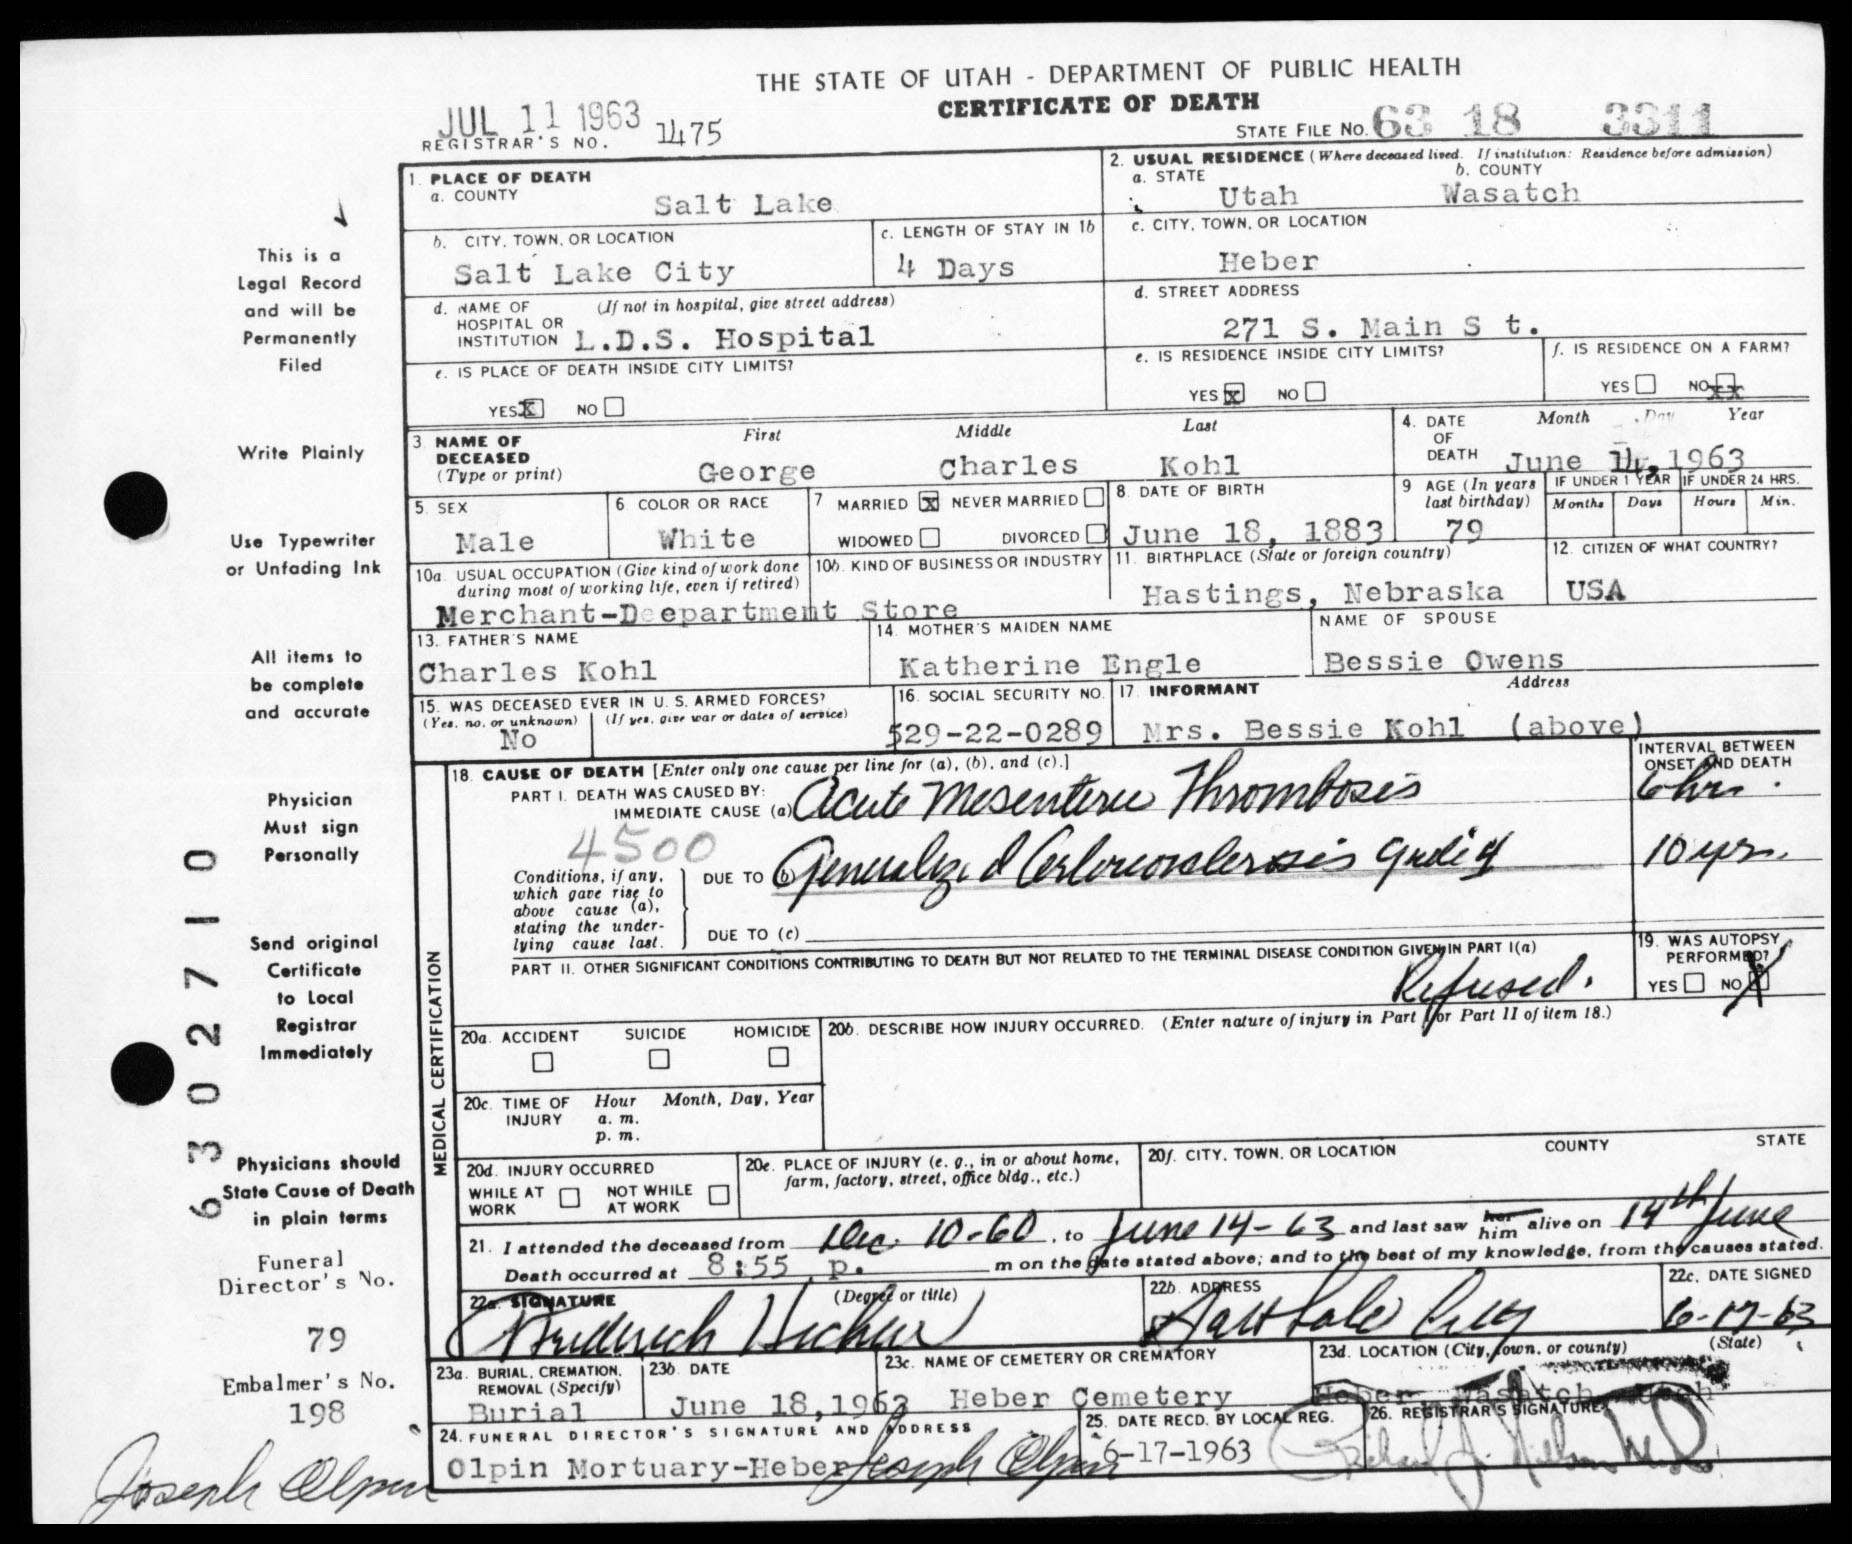 THE STATE OF UTAH - DEPARTMENT OF PUBLIC HEALTH
CERTIFICATE OF DEATH
JUL 11 1963
REGISTRAR'S NO. 1475
STATE FILE NO. 63 18 3311
1. PLACE OF DEATH
a. COUNTY
Salt Lake
2. USUAL RESIDENCE (Where deceased lived. If institution: Residence before admission)
a. STATE
Utah
b. COUNTY
Wasatch
b. CITY, TOWN, OR LOCATION
Salt Lake City
c. LENGTH OF STAY IN 1b
4 Days
c. CITY, TOWN, OR LOCATION
Heber
d. NAME OF HOSPITAL OR INSTITUTION
(If not in hospital, give street address)
L.D.S. Hospital
d. STREET ADDRESS
271 S. Main S t.
e. IS PLACE OF DEATH INSIDE CITY LIMITS?
YES X NO
e. IS RESIDENCE INSIDE CITY LIMITS?
YES X NO
f. IS RESIDENCE ON A FARM?
YES NO xx
3. NAME OF DECEASED
(Type or print)
First Middle Last
George Charles Kohl
4. DATE OF DEATH
Month Day Year
June 14, 1963
5. SEX
Male
6. COLOR OR RACE
White
7 MARRIED X NEVER MARRIED
WIDOWED DIVORCED
8. DATE OF BIRTH
June 18, 1883
9 AGE (In years last birthday)
79
IF UNDER 1 YEAR
Months Days
IF UNDER 24 HRS.
Hours Min.
10a. USUAL OCCUPATION (Give kind of work done during most of working life, even if retired)
10b. KIND OF BUSINESS OR INDUSTRY
Merchant-Deepartment Store
11. BIRTHPLACE (State or foreign country)
Hastings, Nebraska
12. CITIZEN OF WHAT COUNTRY?
USA
13. FATHER'S NAME
Charles Kohl
14. MOTHER'S MAIDEN NAME
Katherine Engle
NAME OF SPOUSE
Bessie Owens
15. WAS DECEASED EVER IN U. S. ARMED FORCES?
(Yes, no, or unknown) (If yes, give war or dates of service)
No
16. SOCIAL SECURITY NO.
529-22-0289
17. INFORMANT Address
Mrs. Bessie Kohl (above)
MEDICAL CERTIFICATION
18. CAUSE OF DEATH [Enter only one cause per line for (a), (b), and (c).]
INTERVAL BETWEEN ONSET AND DEATH
PART I. DEATH WAS CAUSED BY:
IMMEDIATE CAUSE (a) Acute Mesenteric Thrombosis
6 hrs.
4500
Conditions, if any, which gave rise to above cause (a), stating the underlying cause last.
DUE TO (b) Generalized
10 yrs.
DUE TO (c)
PART II. OTHER SIGNIFICANT CONDITIONS CONTRIBUTING TO DEATH BUT NOT RELATED TO THE TERMINAL DISEASE CONDITION GIVEN IN PART I(a)
Refused.
19. WAS AUTOPSY PERFORMED?
YES NO X
20a. ACCIDENT SUICIDE HOMICIDE
20b. DESCRIBE HOW INJURY OCCURRED. (Enter nature of injury in Part I or Part II of item 18.)
20c. TIME OF INJURY
Hour Month, Day, Year
a. m.
p. m.
20d. INJURY OCCURRED
WHILE AT WORK NOT WHILE AT WORK
20e. PLACE OF INJURY (e. g., in or about home, farm, factory, street, office bldg., etc.)
20f. CITY, TOWN, OR LOCATION COUNTY STATE
21. I attended the deceased from Dec. 10-60, to June 14-63 and last saw her him alive on 14th June
Death occurred at 8:55 p. m on the date stated above; and to the best of my knowledge, from the causes stated.
22a. SIGNATURE (Degree or title)
22b. ADDRESS
Salt Lake City
22c. DATE SIGNED
6-17-63
23a. BURIAL, CREMATION, REMOVAL (Specify)
Burial
23b. DATE
June 18,1963
23c. NAME OF CEMETERY OR CREMATORY
Heber Cemetery
23d. LOCATION (City, town, or county) (State)
Heber Wasatch Utah
24. FUNERAL DIRECTOR'S SIGNATURE AND ADDRESS
Olpin Mortuary-Heber Joseph Olpin
25. DATE RECD. BY LOCAL REG.
6-17-1963
26. REGISTRAR'S SIGNATURE
This is a
Legal Record
and will be
Permanently
Filed
Write Plainly
Use Typewriter
or Unfading Ink
All items to
be complete
and accurate
Physician
Must sign
Personally
Send original
Certificate
to Local
Registrar
Immediately
Physicians should
State Cause of Death
in plain terms
Funeral
Director's No.
79
Embalmer's No.
198
Joseph Olpin
6302710